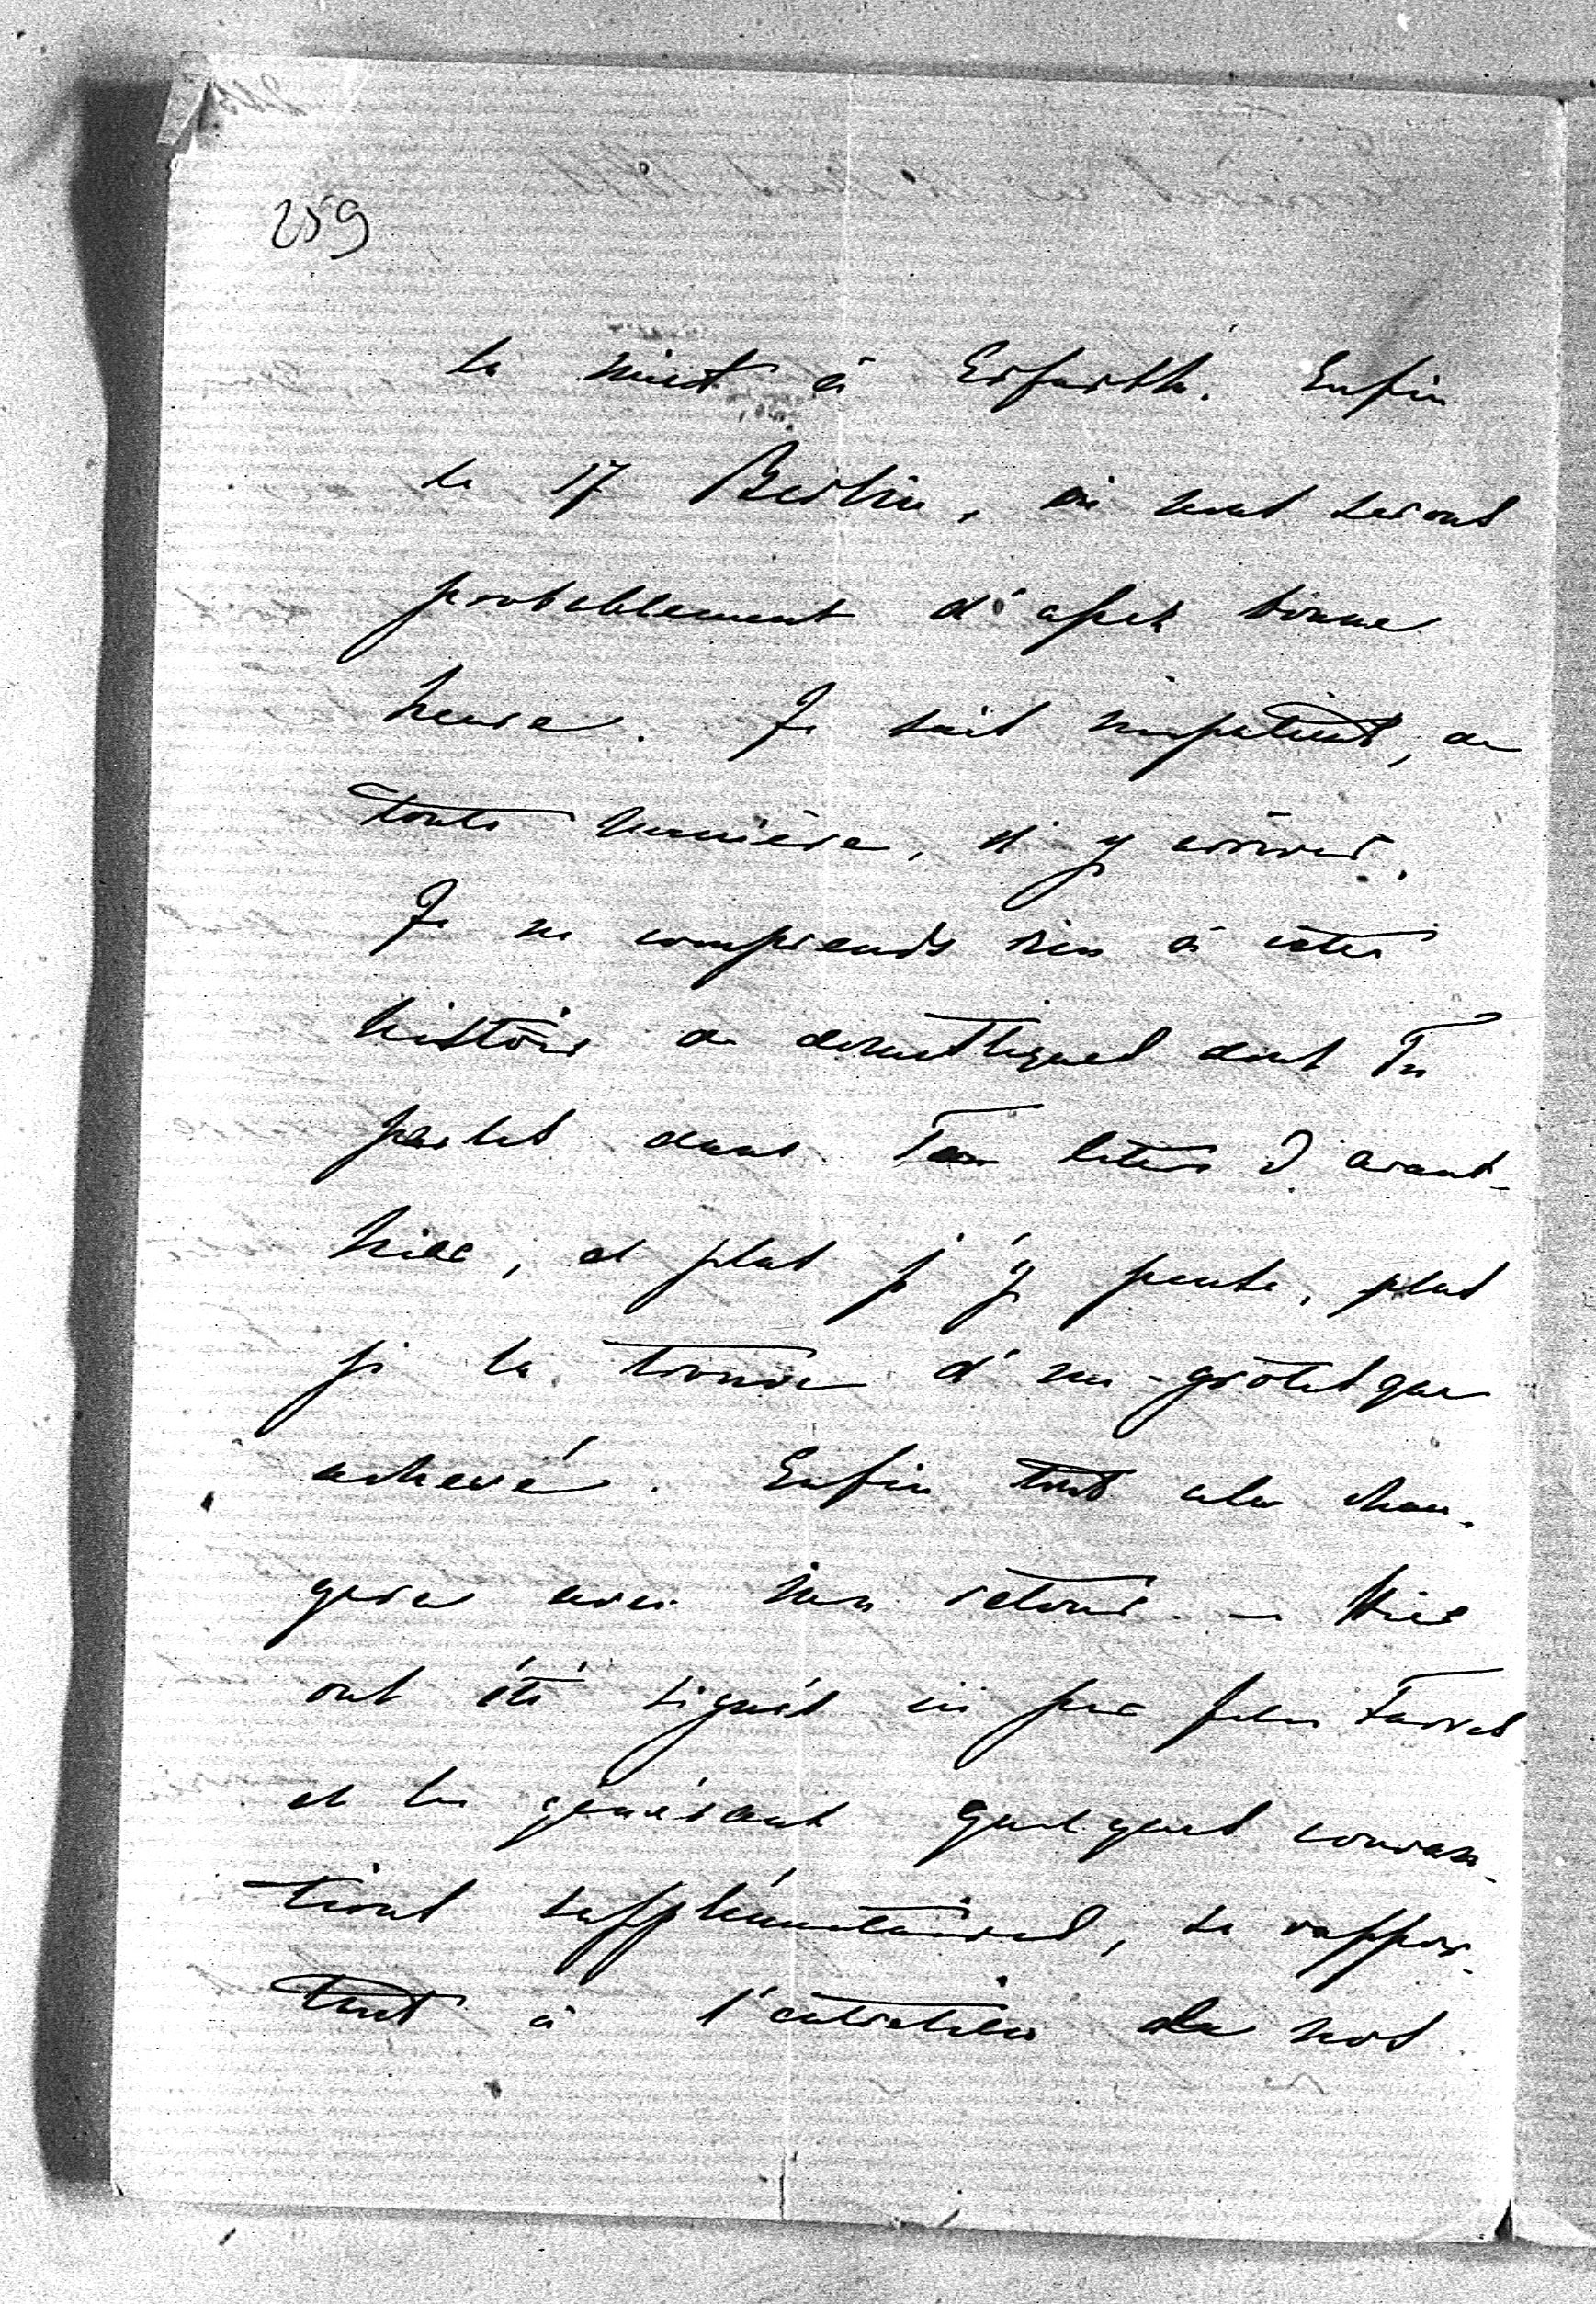 259
la nuit à Erfurth. Enfin
le 17 Berlin, où nous serons
probablement d'assez bonne
heure. Je suis impatient, de
toute manière, d'y arriver.
Je ne comprends rien à cette
histoire de domestiques dont Tu
parles dans Ta lettre d'avant-
hier, et plus j'y pense, plus
je la trouve d'un grotesque
achevé. Enfin tout cela chan-
gera avec mon retour. — Hier
ont été signés ici par Jules Favres
et les généraux quelques conven-
tions supplémentaires, se rappor-
tant à l'entretien de nos